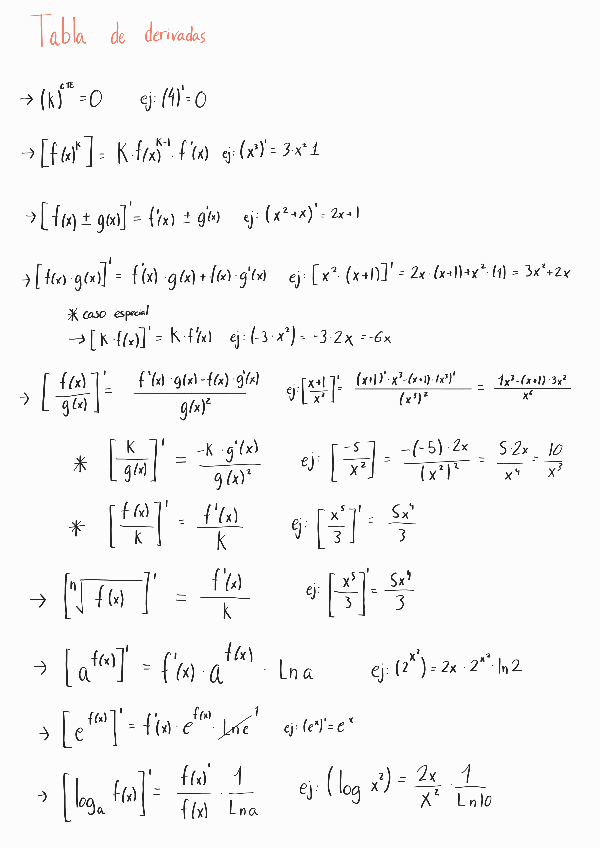 Tabla de derivadas
→ (k)^CTE = 0 ej: (4)' = 0
→ [f(x)^k] = K·f(x)^K-1 · f'(x) ej: (x³)' = 3·x²·1
→ [f(x) ± g(x)]' = f'(x) ± g'(x) ej: (x²+x)' = 2x+1
→ [f(x)·g(x)]' = f'(x)·g(x)+f(x)·g'(x) ej: [x²·(x+1)]' = 2x·(x+1)+x²·(1) = 3x²+2x
* caso especial
→ [K·f(x)]' = K·f'(x) ej: (-3·x²) = -3·2x = -6x
→ [f(x)/g(x)]' = (f'(x)·g(x)-f(x)·g'(x))/g(x)² ej: [(x+1)/x³]' = ((x+1)'·x³-(x+1)·(x³)')/(x³)² = (1x³-(x+1)·3x²)/x⁶
* [K/g(x)]' = (-K·g'(x))/g(x)² ej: [-5/x²] = (-(-5)·2x)/(x²)² = (5·2x)/x⁴ = 10/x³
* [f(x)/K]' = f'(x)/K ej: [x⁵/3]' = 5x⁴/3
→ [ⁿ√f(x)]' = f'(x)/k ej: [x⁵/3]' = 5x⁴/3
→ [a^f(x)]' = f'(x)·a^f(x) · Ln a ej: (2^x²) = 2x·2^x²·ln2
→ [e^f(x)]' = f'(x)·e^f(x)·Ln e 1 ej: (e^x)' = e^x
→ [log_a f(x)]' = f(x)'/f(x) · 1/Ln a ej: (log x²) = 2x/x² · 1/Ln10